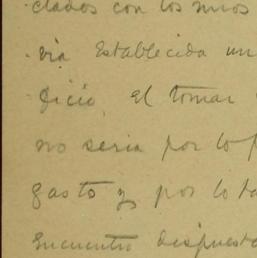 clados con los mios
via Establecida un
ficio, el tomar
no seria por lo p
gasto y por lo ta
Encuentro dispuesto